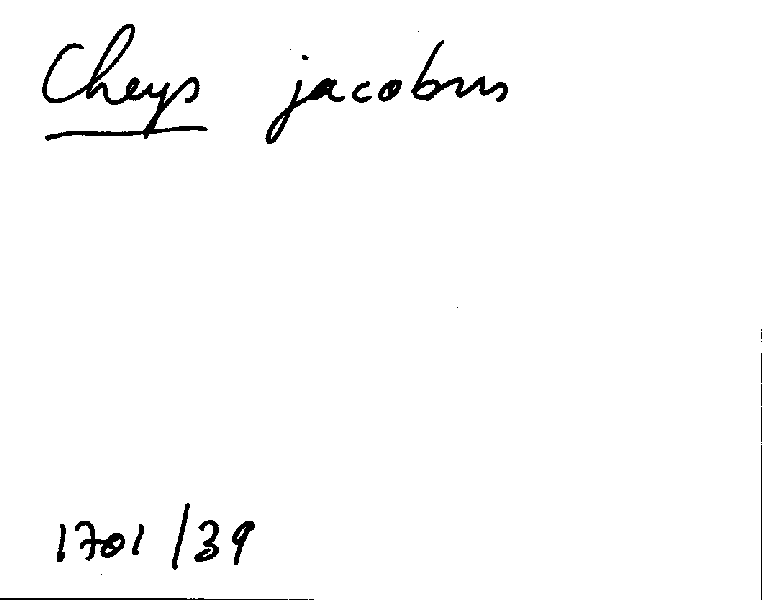 Cheys jacobus
1701/39